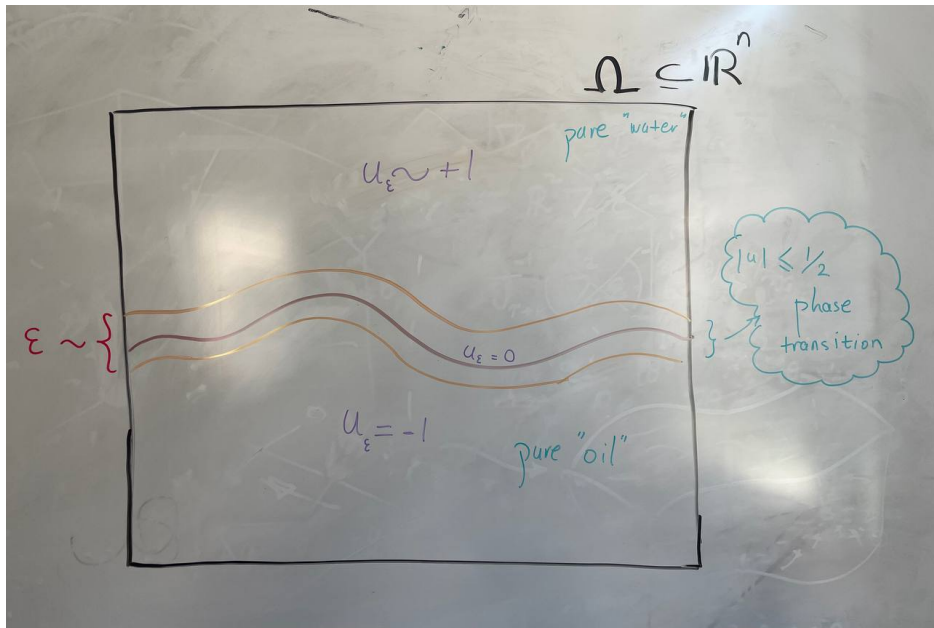 Ω ⊆ ℝⁿ
pure "water"
u_ε ∼ +1
|u| ≤ 1/2
phase
transition
ε ∼ {
u_ε = 0
u_ε = -1
pure "oil"